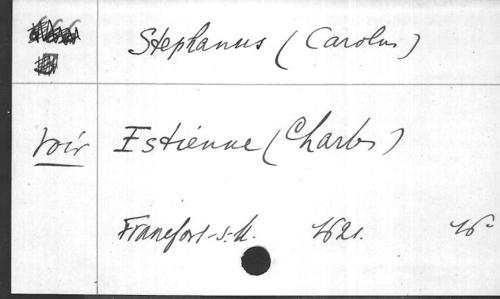 Stephanus (Carolus)
voir Estienne (Charles)
Francfort-s.-M. 1621. 16°